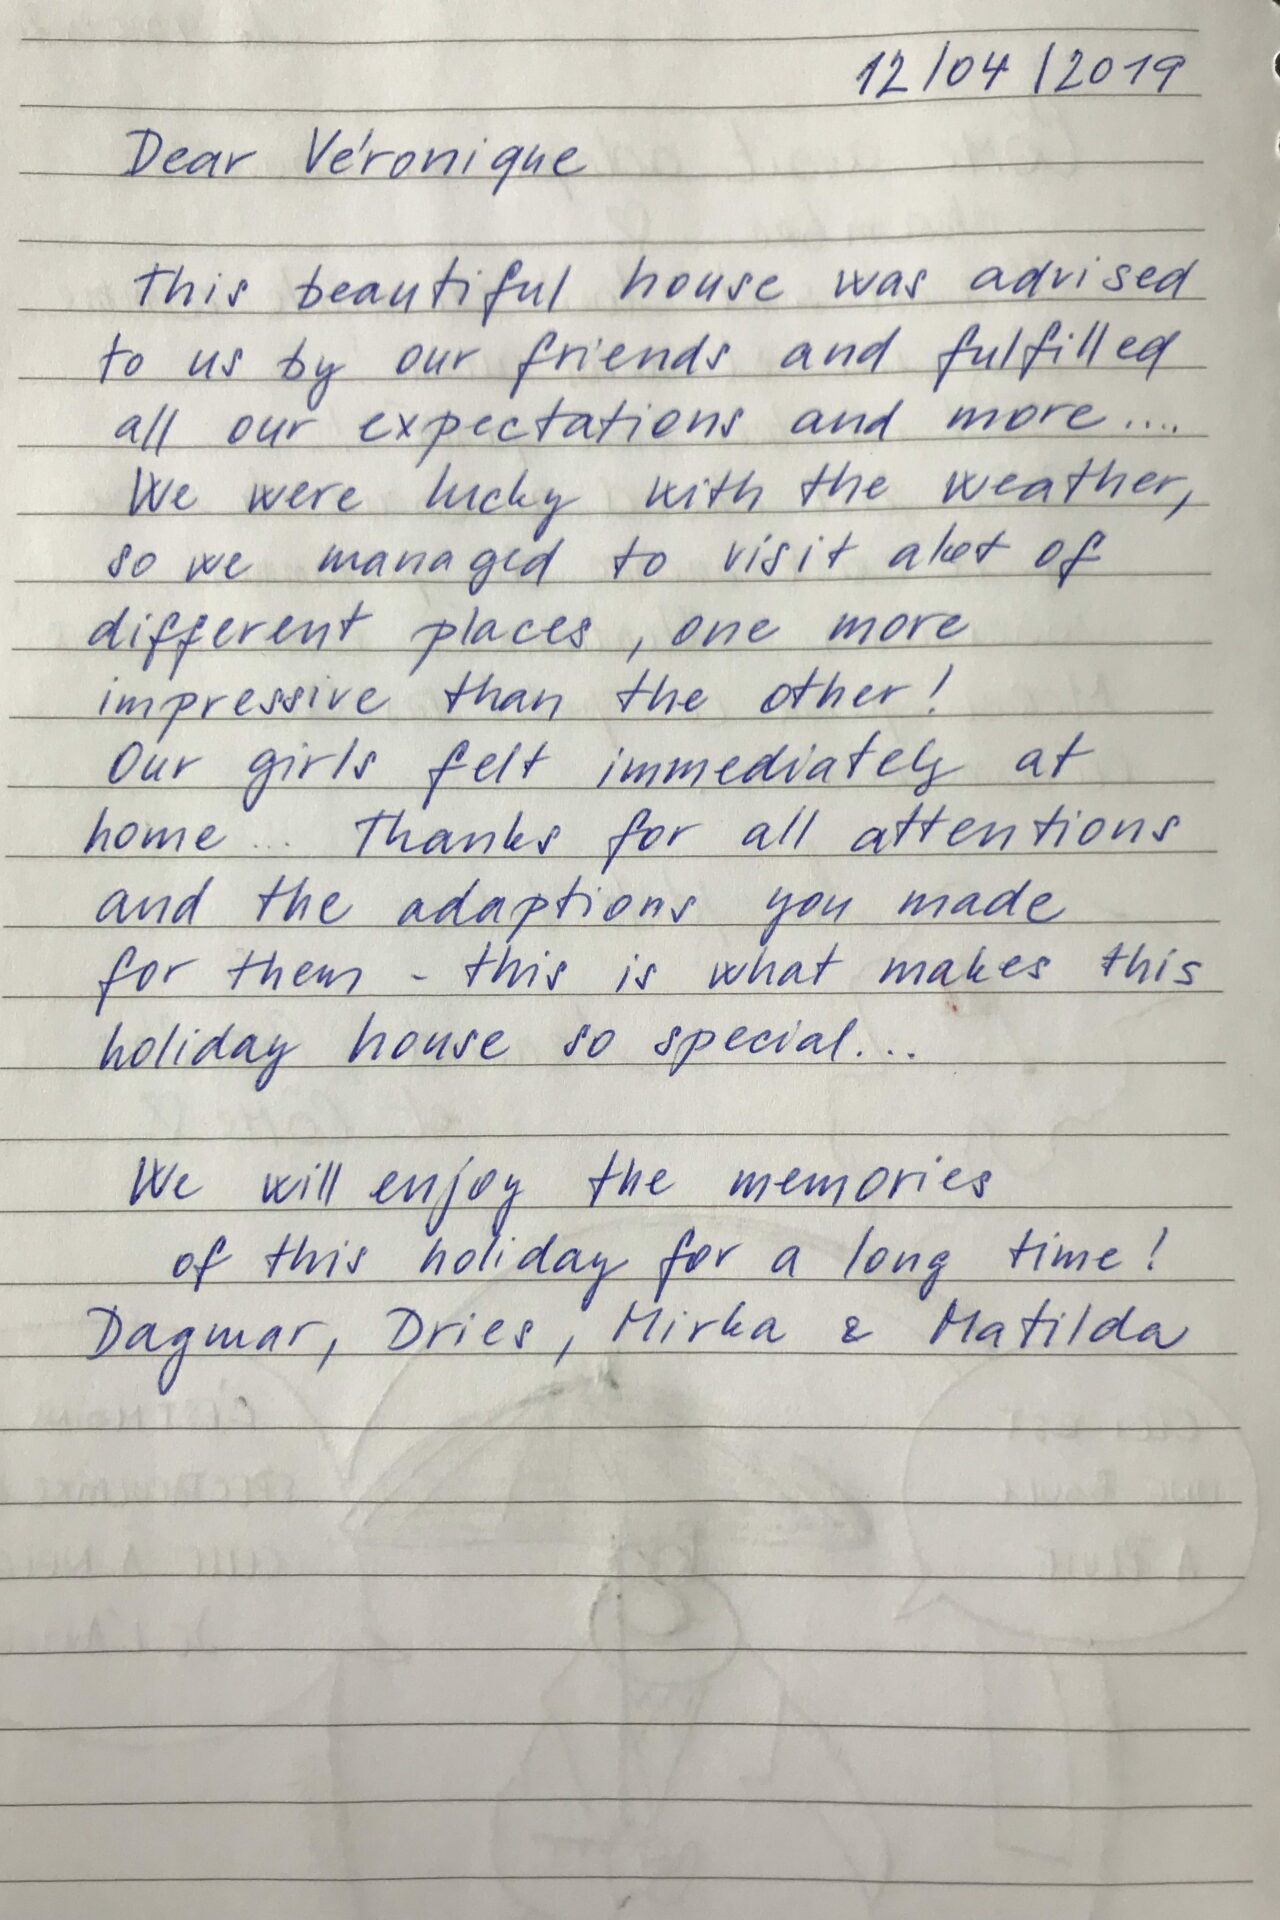 12/04/2019
Dear Véronique
This beautiful house was advised
to us by our friends and fulfilled
all our expectations and more....
We were lucky with the weather,
so we managed to visit alot of
different places, one more
impressive than the other!
Our girls felt immediately at
home... Thanks for all attentions
and the adaptions you made
for them - this is what makes this
holiday house so special...
We will enjoy the memories
of this holiday for a long time!
Dagmar, Dries, Mirka & Matilda